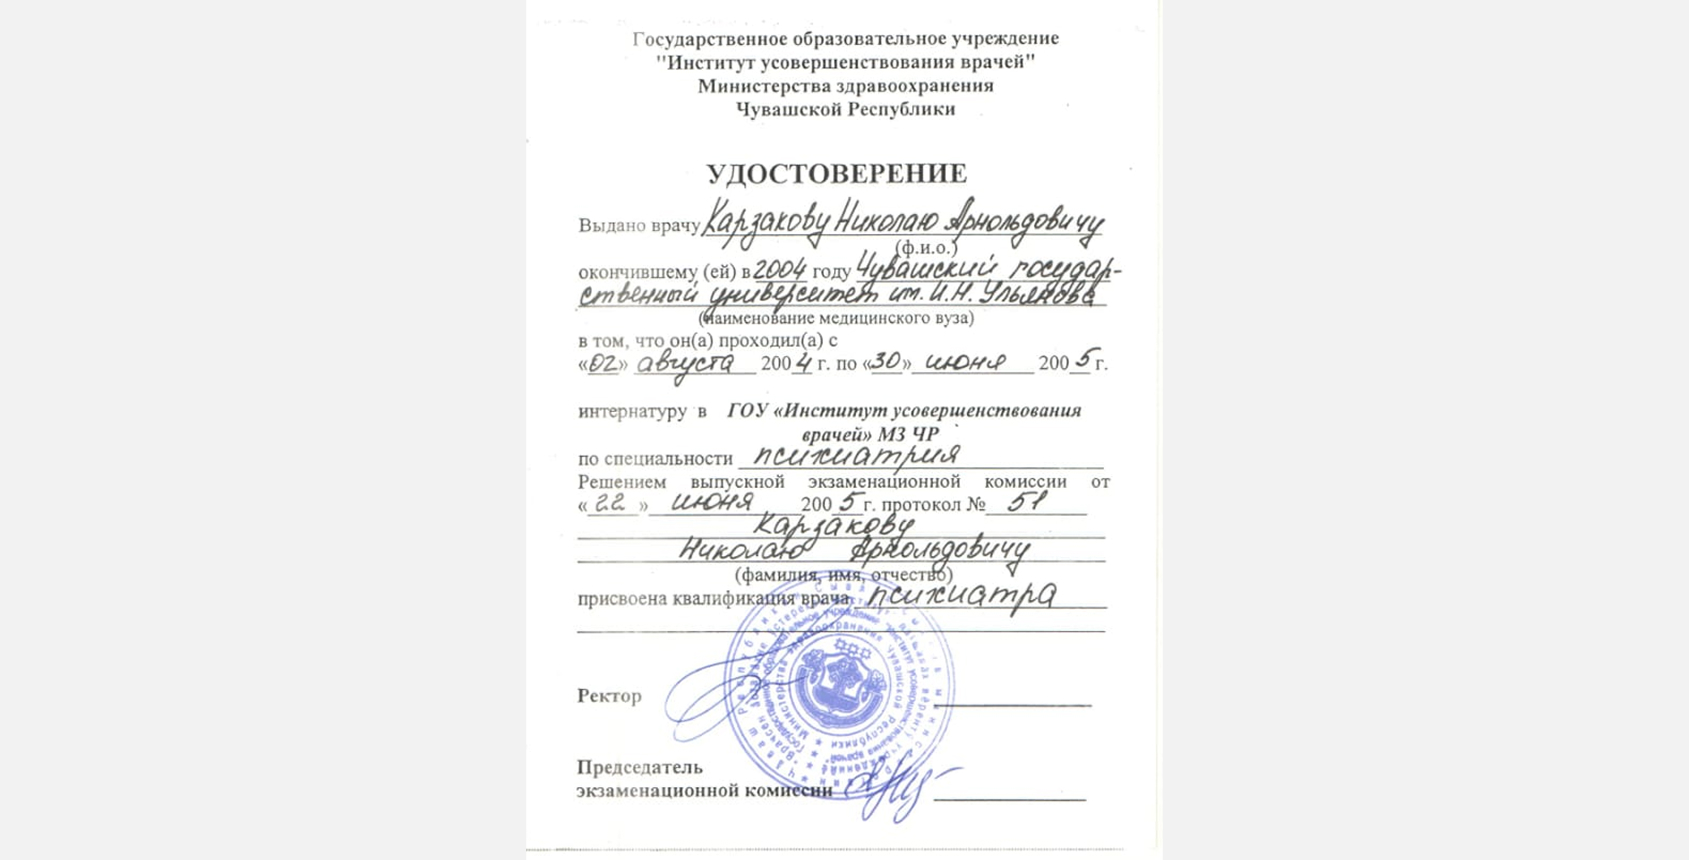 Государственное образовательное учреждение
"Институт усовершенствования врачей"
Министерства здравоохранения
Чувашской Республики
УДОСТОВЕРЕНИЕ
Выдано врачу Карзакову Николаю Арнольдовичу
(ф.и.о.)
окончившему (ей) в 2004 году Чувашский государ-
ственный университет им. И.Н. Ульянова
(наименование медицинского вуза)
в том, что он(а) проходил(а) с
«02» августа 2004 г. по «30» июня 2005 г.
интернатуру в ГОУ «Институт усовершенствования
врачей» МЗ ЧР
по специальности психиатрия
Решением выпускной экзаменационной комиссии от
«22» июня 2005 г. протокол № 51
Карзакову
Николаю Арнольдовичу
(фамилия, имя, отчество)
присвоена квалификация врача психиатра
Ректор
Председатель
экзаменационной комиссии
Министерства здравоохранения Чувашской Республики